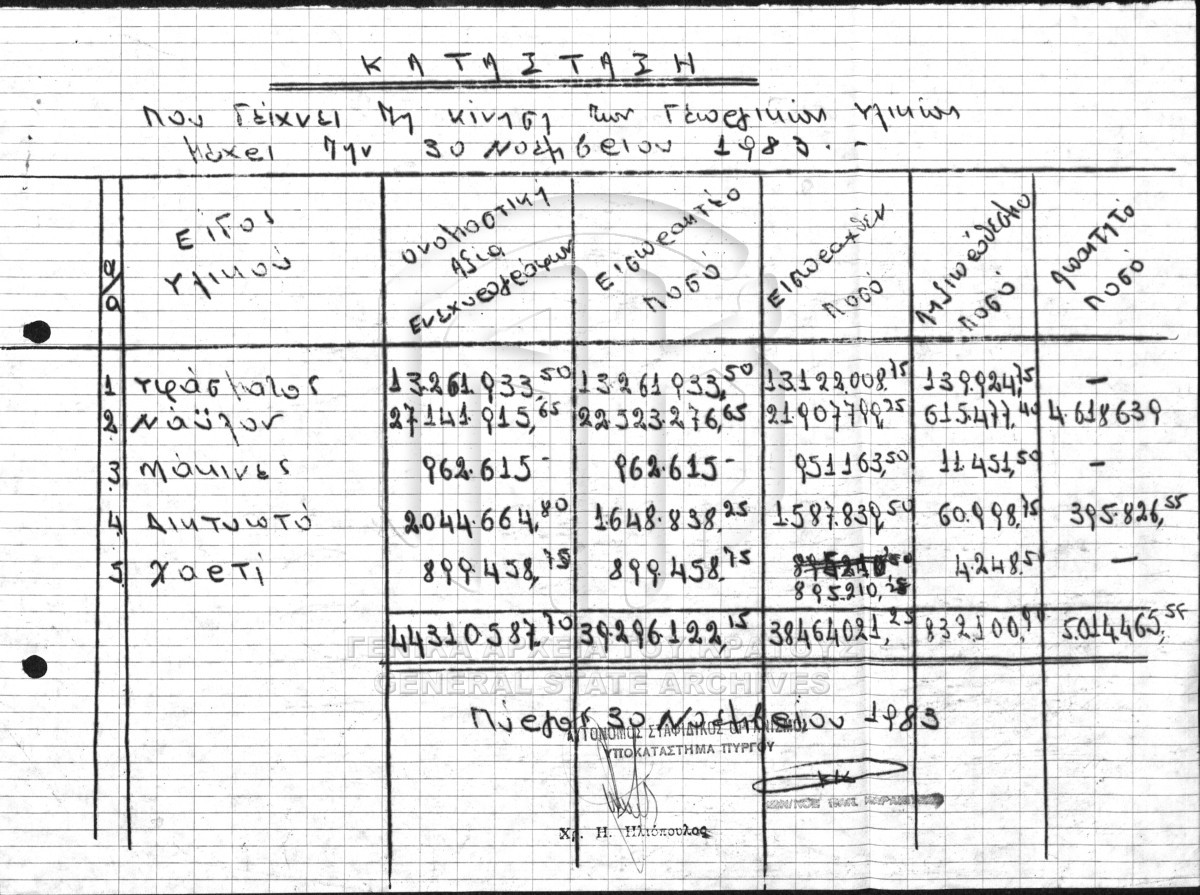 ΚΑΤΑΣΤΑΣΗ
που δείχνει τη κίνηση των Γεωργικών υλικών
μέχρι την 30 Νοεμβρίου 1983.-
α/α
Είδος υλικού
ονομαστική αξία ενεχυρογράφων
Εισπρακτέο ποσό
Εισπραχθέν ποσό
Ληξιπρόθεσμο ποσό
Απαιτητό ποσό
1 υφάσματος 13.261.933,50 13.261.933,50 13.122.008,75 139.924,75 —
2 Νάϋλον 27.141.915,65 22.523.276,65 21.907.799,25 615.477,40 4.618.639
3 Μάκινες 962.615- 962.615- 951.163,50 11.451,50 —
4 Δικτυωτό 2.044.664,80 1.648.838,25 1.587.839,50 60.998,75 395.826,55
5 χαρτί 899.458,75 899.458,75 895.210,25 4.248,50 —
44.310.587,70 39.296.122,15 38.464.021,25 832.100,90 5.014.465,55
ΓΕΝΙΚΑ ΑΡΧΕΙΑ ΤΟΥ ΚΡΑΤΟΥΣ
GENERAL STATE ARCHIVES
Πύργος 30 Νοεμβρίου 1983
ΑΥΤΟΝΟΜΟΣ ΣΤΑΦΙΔΙΚΟΣ ΟΡΓΑΝΙΣΜΟΣ
ΥΠΟΚΑΤΑΣΤΗΜΑ ΠΥΡΓΟΥ
Χρ. Η. Ηλιόπουλος